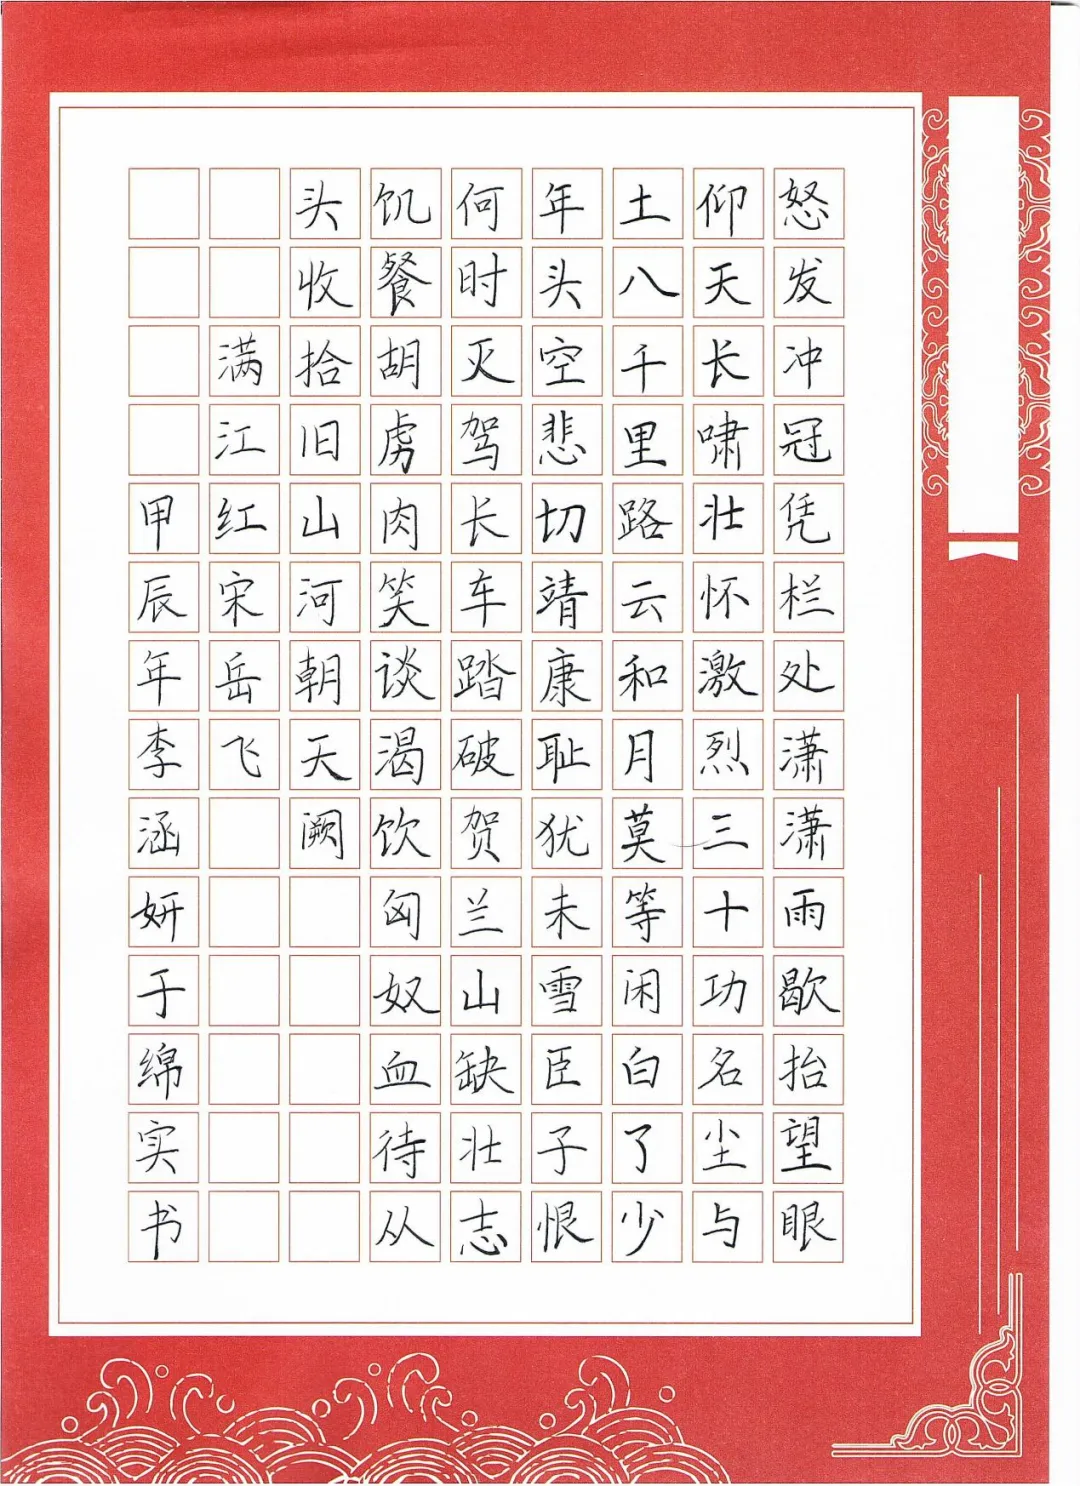 怒发冲冠凭栏处潇潇雨歇抬望眼
仰天长啸壮怀激烈三十功名尘与
土八千里路云和月莫等闲白了少
年头空悲切靖康耻犹未雪臣子恨
何时灭驾长车踏破贺兰山缺壮志
饥餐胡虏肉笑谈渴饮匈奴血待从
头收拾旧山河朝天阙
满江红宋岳飞
甲辰年李涵妍于绵实书